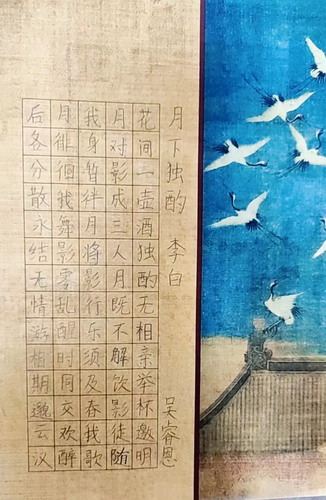 月下独酌 李白
吴睿恩
花间一壶酒独酌无相亲举杯邀明
月对影成三人月既不解饮影徒随
我身暂伴月将影行乐须及春我歌
月徘徊我舞影零乱醒时同交欢醉
后各分散永结无情游相期邈云汉